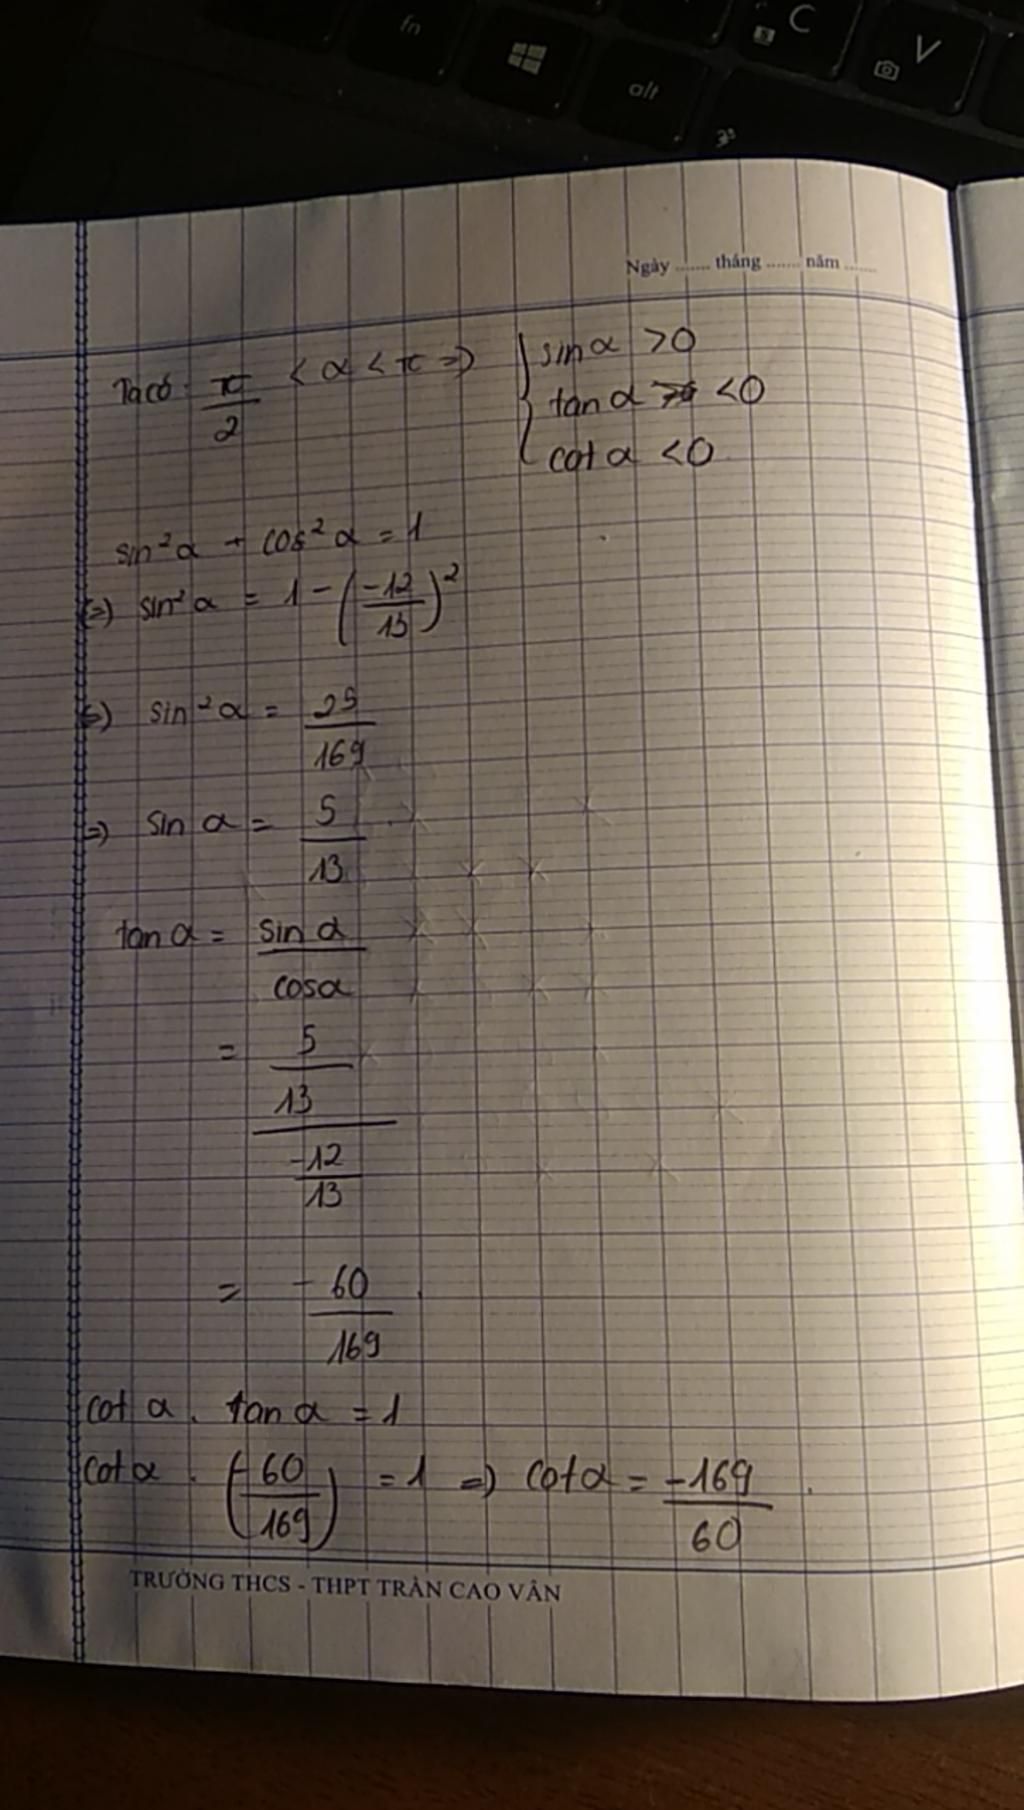 fn
alt
C
V
Ngày ....... tháng ....... năm .......
Ta có: π/2 < α < π => { sin α > 0
tan α < 0
cot α < 0
sin²α + cos²α = 1
(=) sin²α = 1 - (-12/13)²
(=) sin²α = 25/169
=) sin α = 5/13
tan α = sin α / cos α
= 5/13 / -12/13
= - 60/169
cot α . tan α = 1
cot α . (-60/169) = 1 => cot α = -169/60
TRƯỜNG THCS - THPT TRẦN CAO VÂN